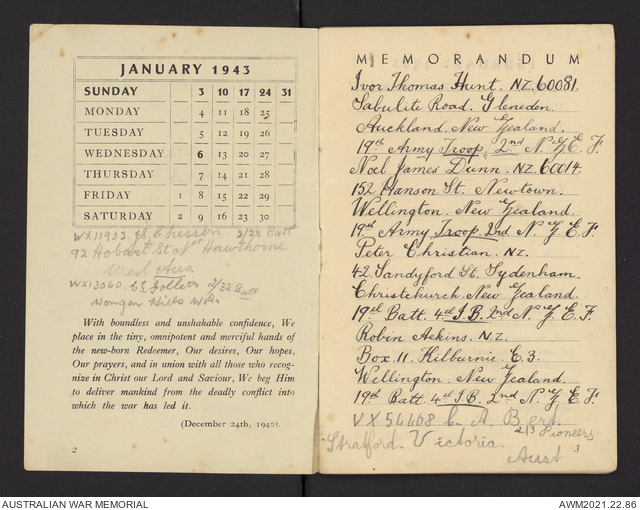 JANUARY 1943
SUNDAY 3 10 17 24 31
MONDAY 4 11 18 25
TUESDAY 5 12 19 26
WEDNESDAY 6 13 20 27
THURSDAY 7 14 21 28
FRIDAY 1 8 15 22 29
SATURDAY 2 9 16 23 30
WX11932 2/28 Batt
92 Hobart St Nth Hawthorne
West Aus.
WX13060 2/32
Wongan Hills W.A.
With boundless and unshakable confidence, We
place in the tiny, omnipotent and merciful hands of
the new-born Redeemer, Our desires, Our hopes,
Our prayers, and in union with all those who recog-
nize in Christ our Lord and Saviour, We beg Him
to deliver mankind from the deadly conflict into
which the war has led it.
(December 24th, 1940).
2
MEMORANDUM
Ivor Thomas Hunt. NZ.60081.
Sabulite Road. Gleneden.
Auckland. New Zealand.
19th Army Troop, 2nd N.Z.E.F.
Noel James Dunn. NZ.60014.
152 Hanson St. Newtown.
Wellington. New Zealand.
19th Army Troop. 2nd N.Z.E.F.
Peter Christian. NZ.
42. Sandyford St. Sydenham.
Christchurch. New Zealand.
19th Batt. 4th I.B. 2nd N.Z.E.F.
Robin Aekins. N.Z.
Box. 11. Kilburnie. E.3.
Wellington. New Zealand.
19th Batt. 4th I.B. 2nd N.Z.E.F
VX54468 C. A
2/3 Pioneers
Stratford. Victoria.
Aust
3
AUSTRALIAN WAR MEMORIAL
AWM2021.22.86